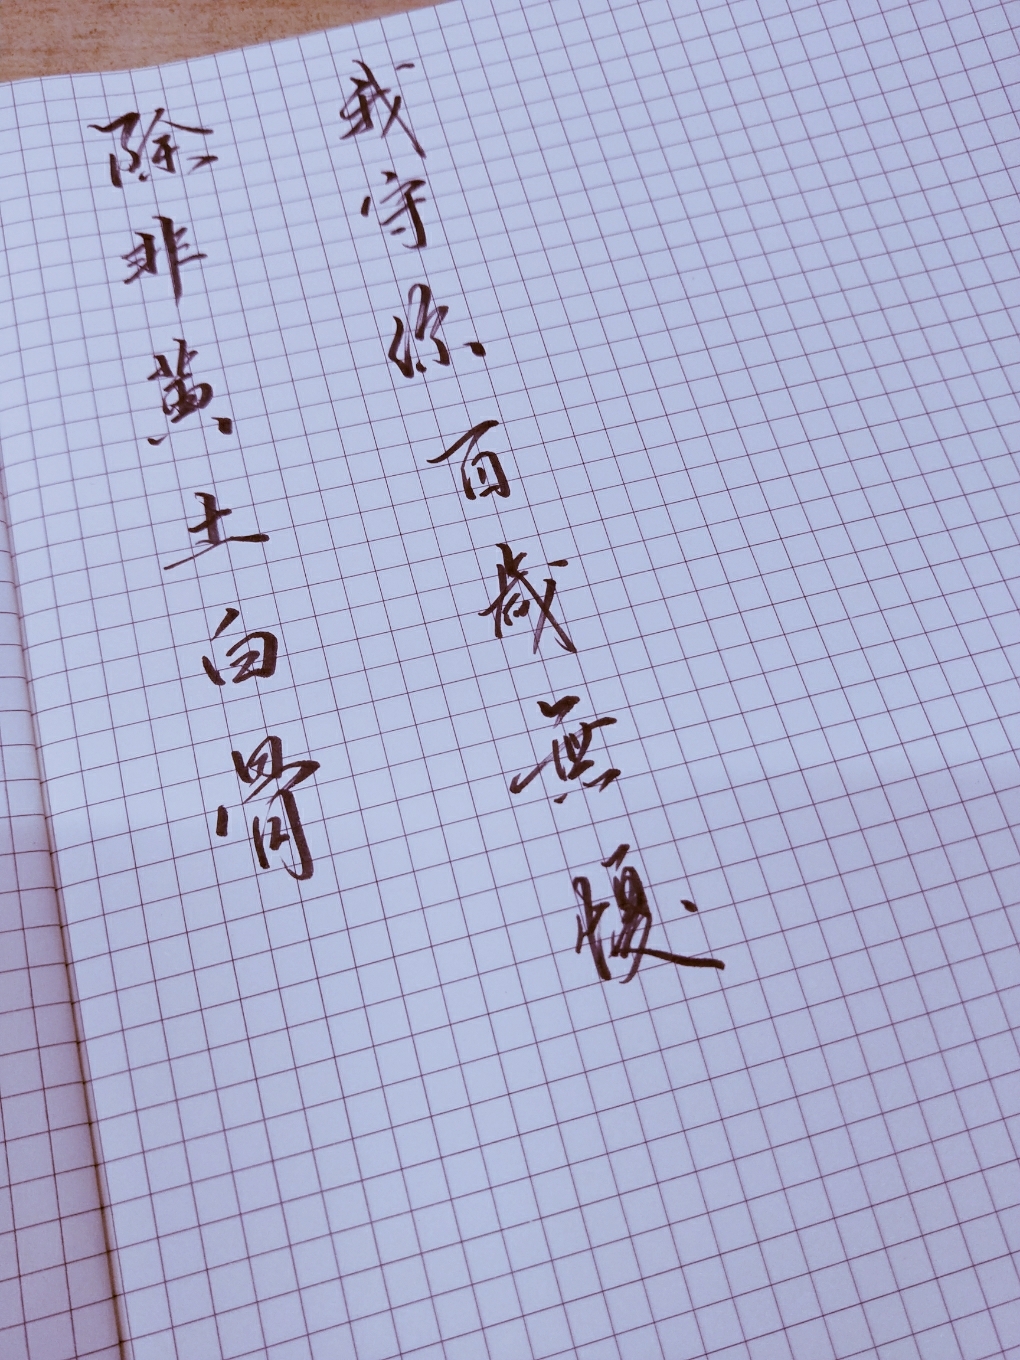 除非黄土白骨
我守你百岁無忧